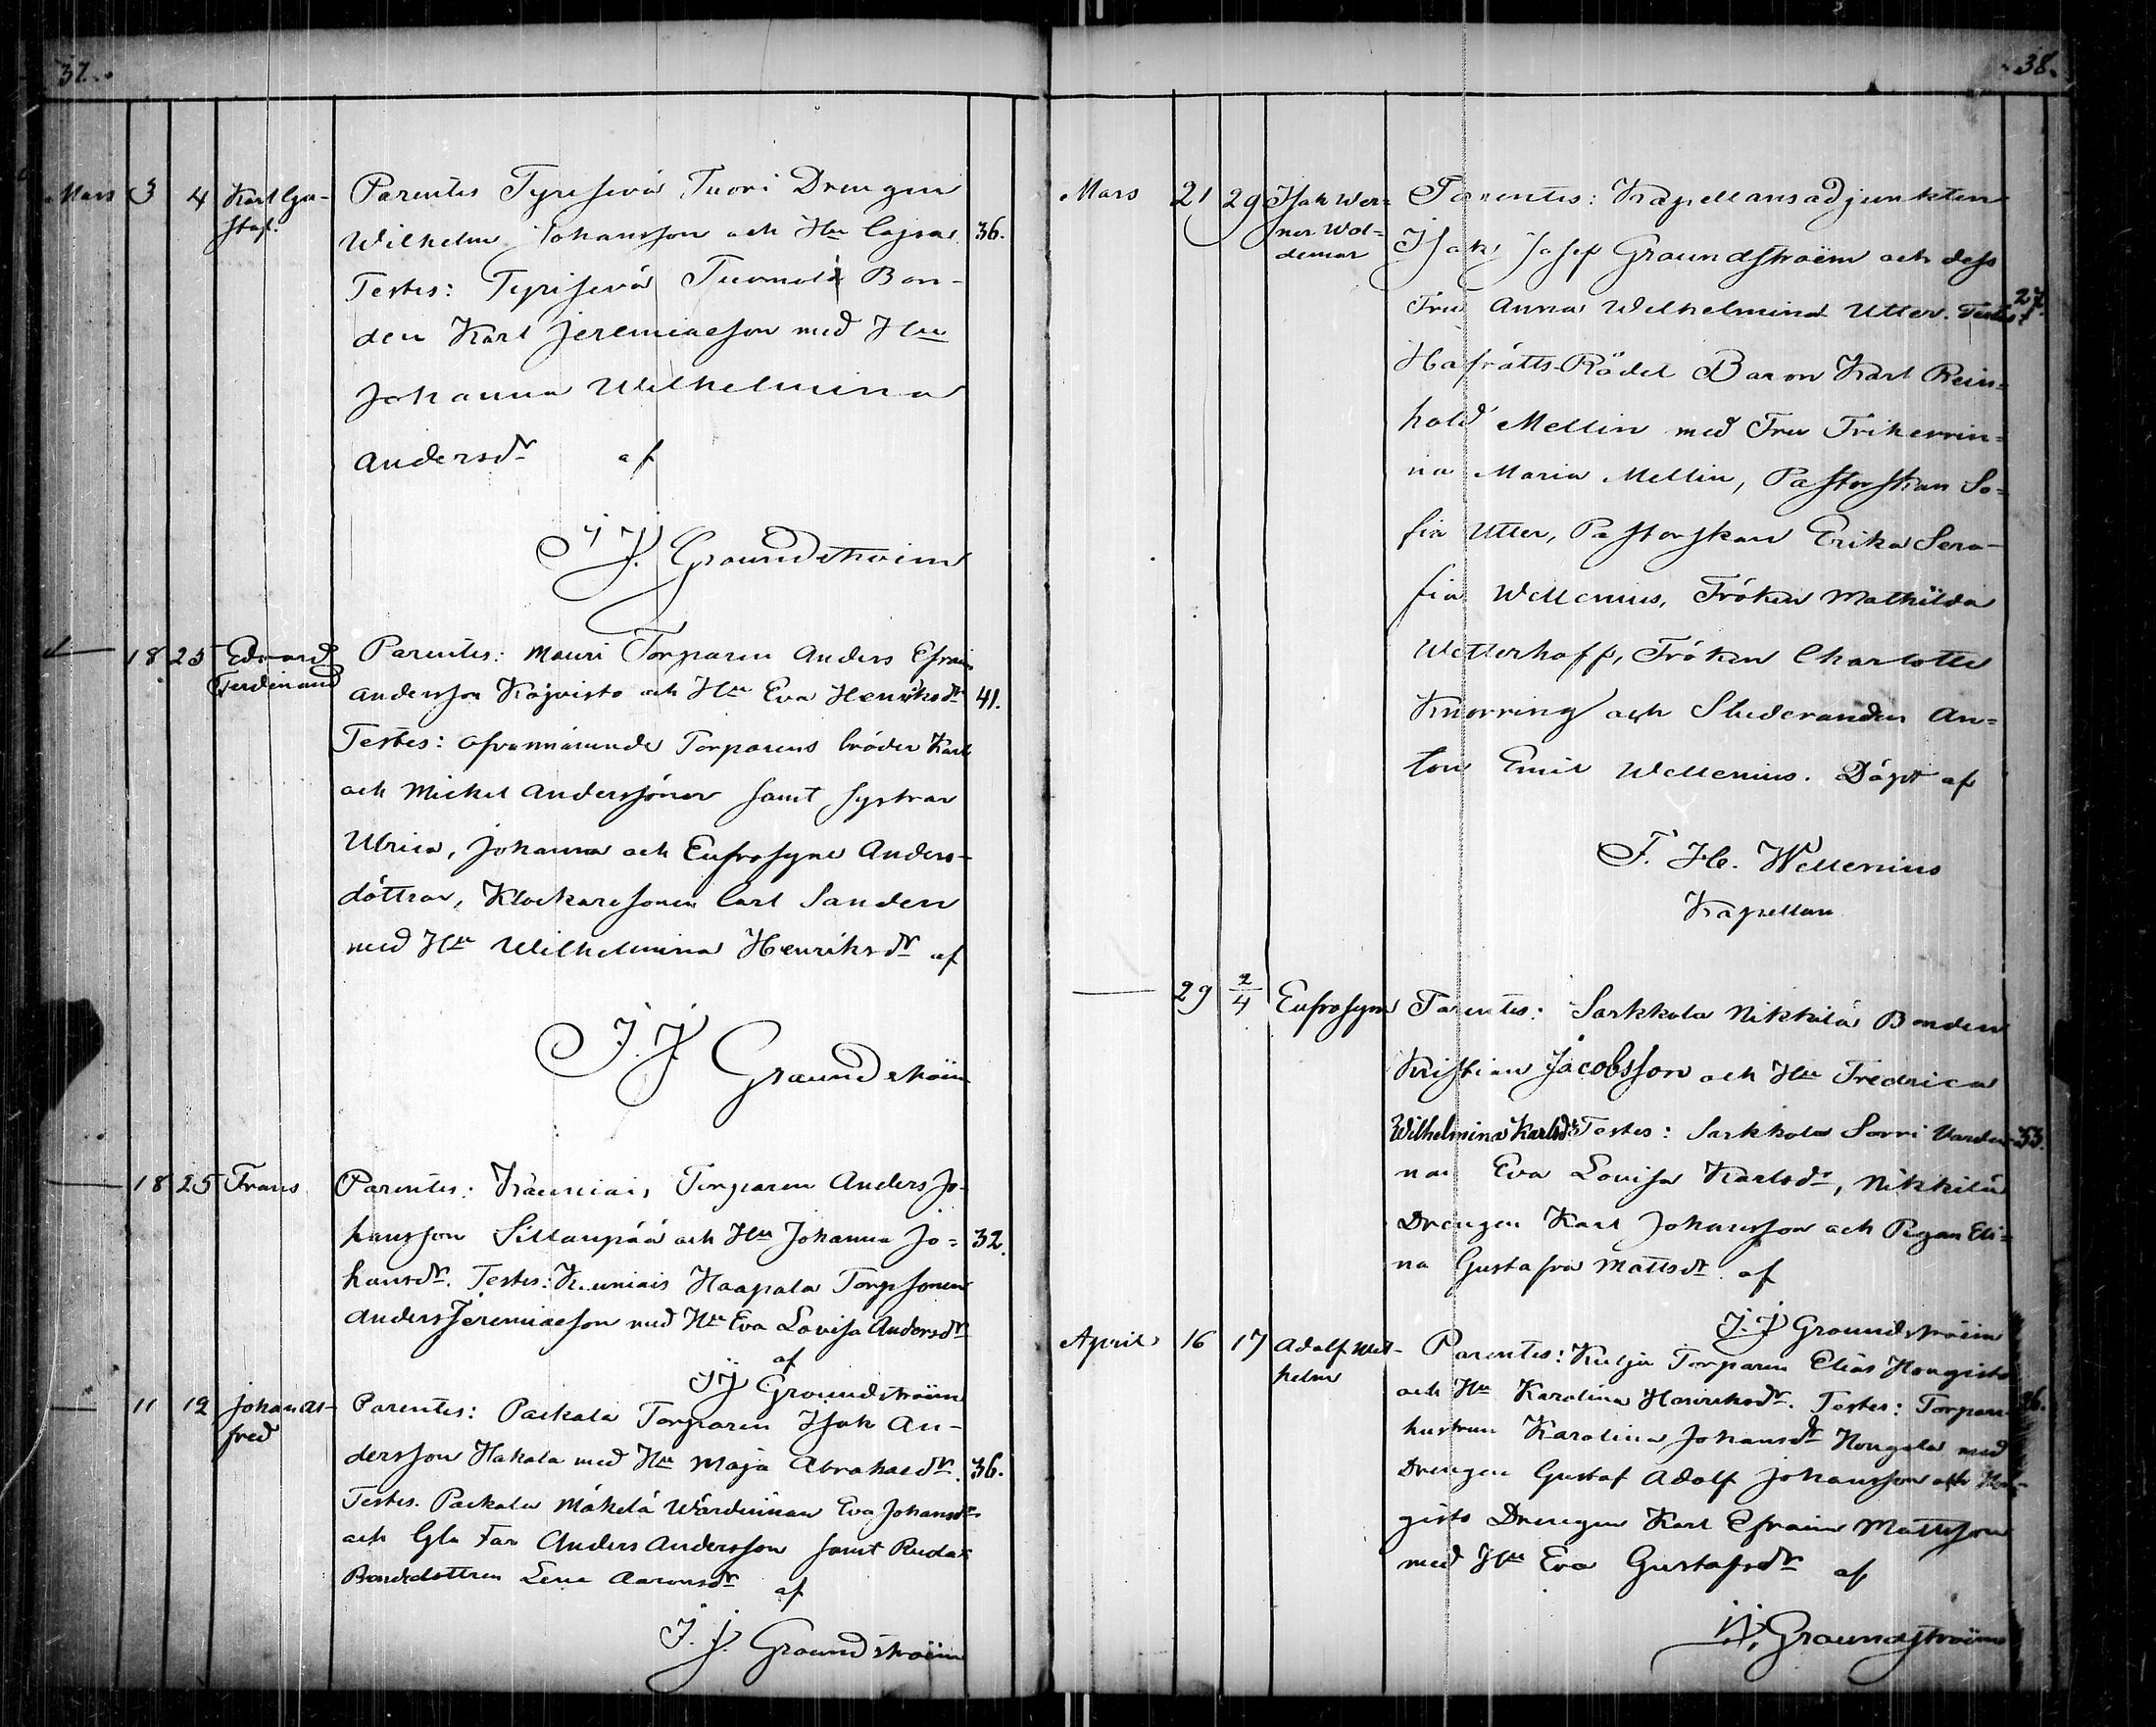 37.
Mars 3 4 Karl Gu- Parentes Tyrisevä Tuori Drengen
staf. Wilhelm Johansson och Hu Cajsa 36.
Testes: Tyrisevä Tuomola Bon-
den Karl Jeremiaesson med Hu
Johanna Wilhelmina
Andersdr af
J J. Graundstroëm
18 25 Edvard Parentes: Mauri Torparen Anders Efraim
Ferdinand Andersson Kojvisto och Hu Eva Henriksdr 41.
Testes: ofvannämnde Torparens bröder Karl
och Mickel Anderssöner samt systrar
Ulrica, Johanna och Eufrosyne Anders-
döttrar, Klockaresonen Carl Sanden
med Hu Wilhelmina Henriksdr af
J. J. Graundstroëm
18 25 Frans Parentes: Torparen Anders Jo-
hansson Sillanpää och Hu Johanna Jo= 32.
hansdr. Testes: Haapala Torpsonen
Anders Jeremiaesson med Hu Eva Lovisa Andersdr
af
JJ Graundstroëm
11 12 Johan Al- Parentes: Packala Torparen Isak An-
fred dersson Hakala med Hu Maja Abrahasdr. 36.
Testes. Packala Mäkelä Värdinnan Eva Johansdr
och Gla Far Anders Andersson samt
Bondedottren Lena Aaronsdr af
J. J. Graundstroëm
38.
Mars 21 29 Isak Wer= Parentes: Kapellansadjunkten
ner Wol= Isak Josef Graundstroëm och dess
demar Fru Anna Wilhelmina Utter. Testes: 27.
Hofrätts-Rådet Baron Karl Rein=
hold Mellin med Fru Friherrin=
na Maria Mellin, Pastorskan So=
fia Utter, Pastorskan Erika Sera-
fia Wellenius, Fröken Mathilda
Wetterhoff, Fröken Charlotte
Knorring och Studeranden An=
ton Emil Wellenius. Döpt af
F. H. Wellenius
Kapellan
29 2/4 Eufrosyne Parentes: Sarkkola Nikkilä Bonden
Kristian Jacobsson och Hu Fredrica
Wilhelmina Karlsdr Testes: Sarkkola Sorri Värdin- 33.
nan Eva Lovisa Karlsdr, Nikkilä
Drengen Karl Johansson och Pigan Eli=
na Gustafva Mattsdr. af
J. J Graundstroëm
April 16 17 Adolf Wil- Parentes: Kulju Torparen Elias Hongisto
helm och Hu Karolina Henriksdr. Testes: Torpare 26.
hustrun Karolina Johansdr Hongola med
Drengen Gustaf Adolf Johansson och Hon-
gisto Drengen Karl Efraim Mattsson
med Hu Eva Gustafsdr af
JJ. Graundstroëm